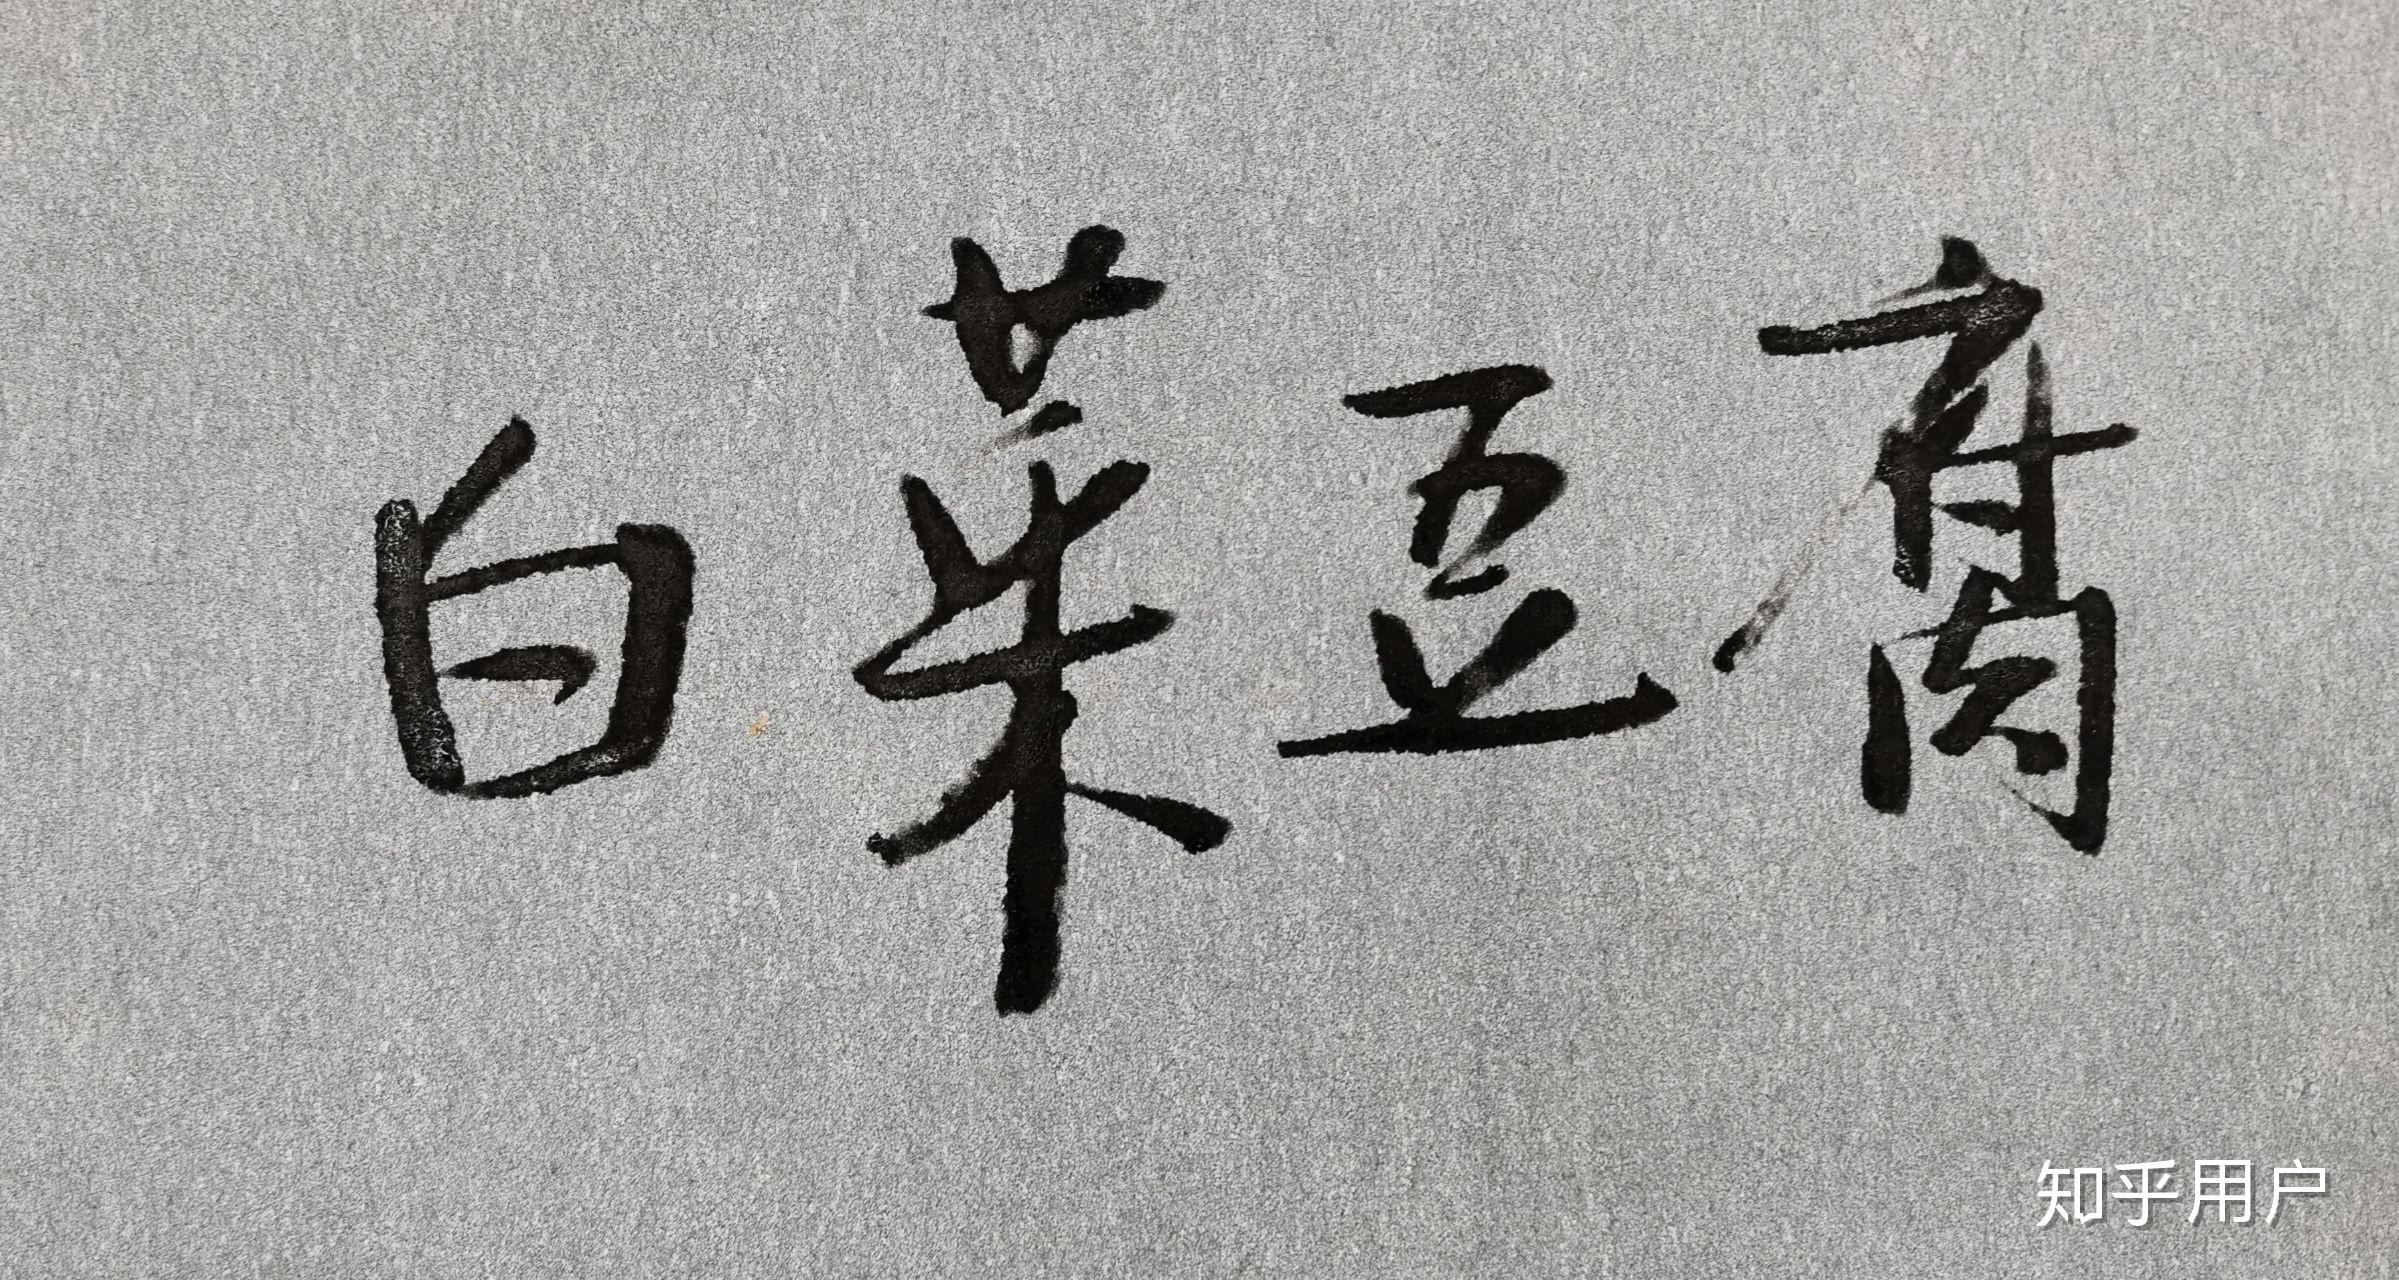 白菜豆腐
知乎用户